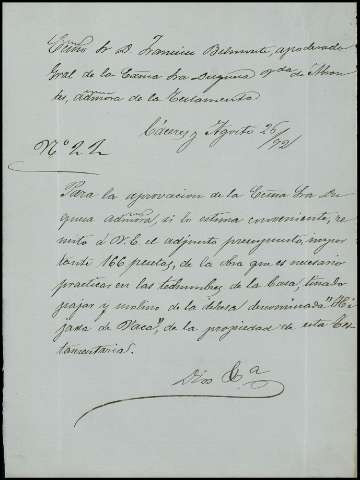 Excmo Sr D. Francisco Belmonte, apoderado
Gral de la Excma Sra Duquesa vda de Abran-
tes, admora de la Testamenta
Cáceres y Agosto 26/92
Nº 22
Para la aprovacion de la Excma Sra Du-
quesa admora, si lo estima conveniente, re-
mito á V. E. el adjunto presupuesto, impor-
tante 166 pesetas, de la obra que es necesario
practicar en las techumbres de la Casa, tinado
pajar y molino de la dehesa denominada "Hi-
jada de Vaca", de la propiedad de esta Tes-
tamentaria.
Dios &a